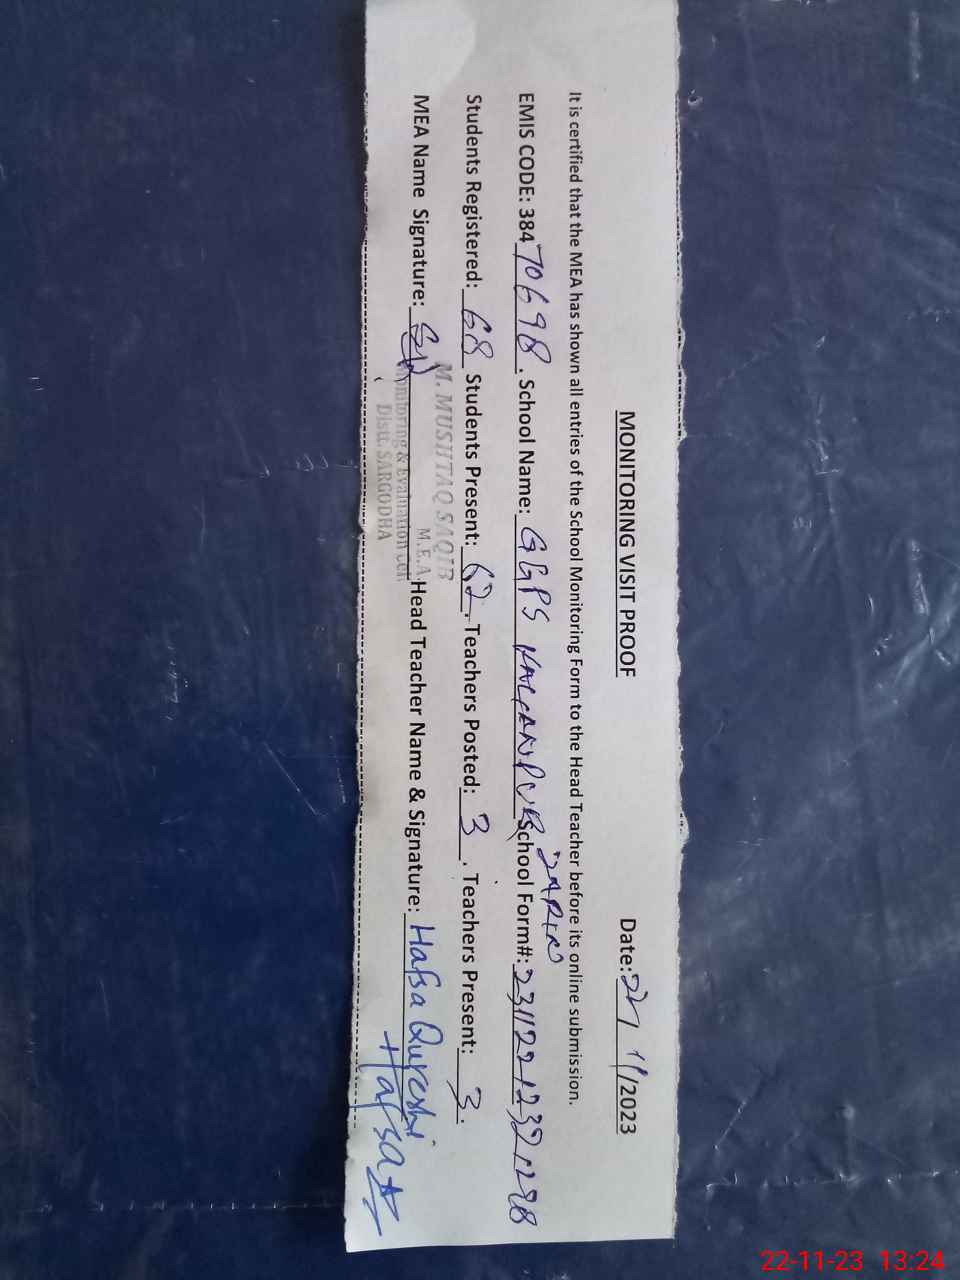 MONITORING VISIT PROOF
Date: 22/11/2023
It is certified that the MEA has shown all entries of the School Monitoring Form to the Head Teacher before its online submission.
EMIS CODE: 38470698. School Name: GGPS KALYANPUR School Form#:
Students Registered: 68 Students Present: 62. Teachers Posted: 3. Teachers Present: 3.
MEA Name Signature: Head Teacher Name & Signature: Hafsa Qureshi
Hafsa
M. MUSHTAQ SAQIB
M.E.A
Monitoring & Evaluation Cell
Distt. SARGODHA
22-11-23 13:24